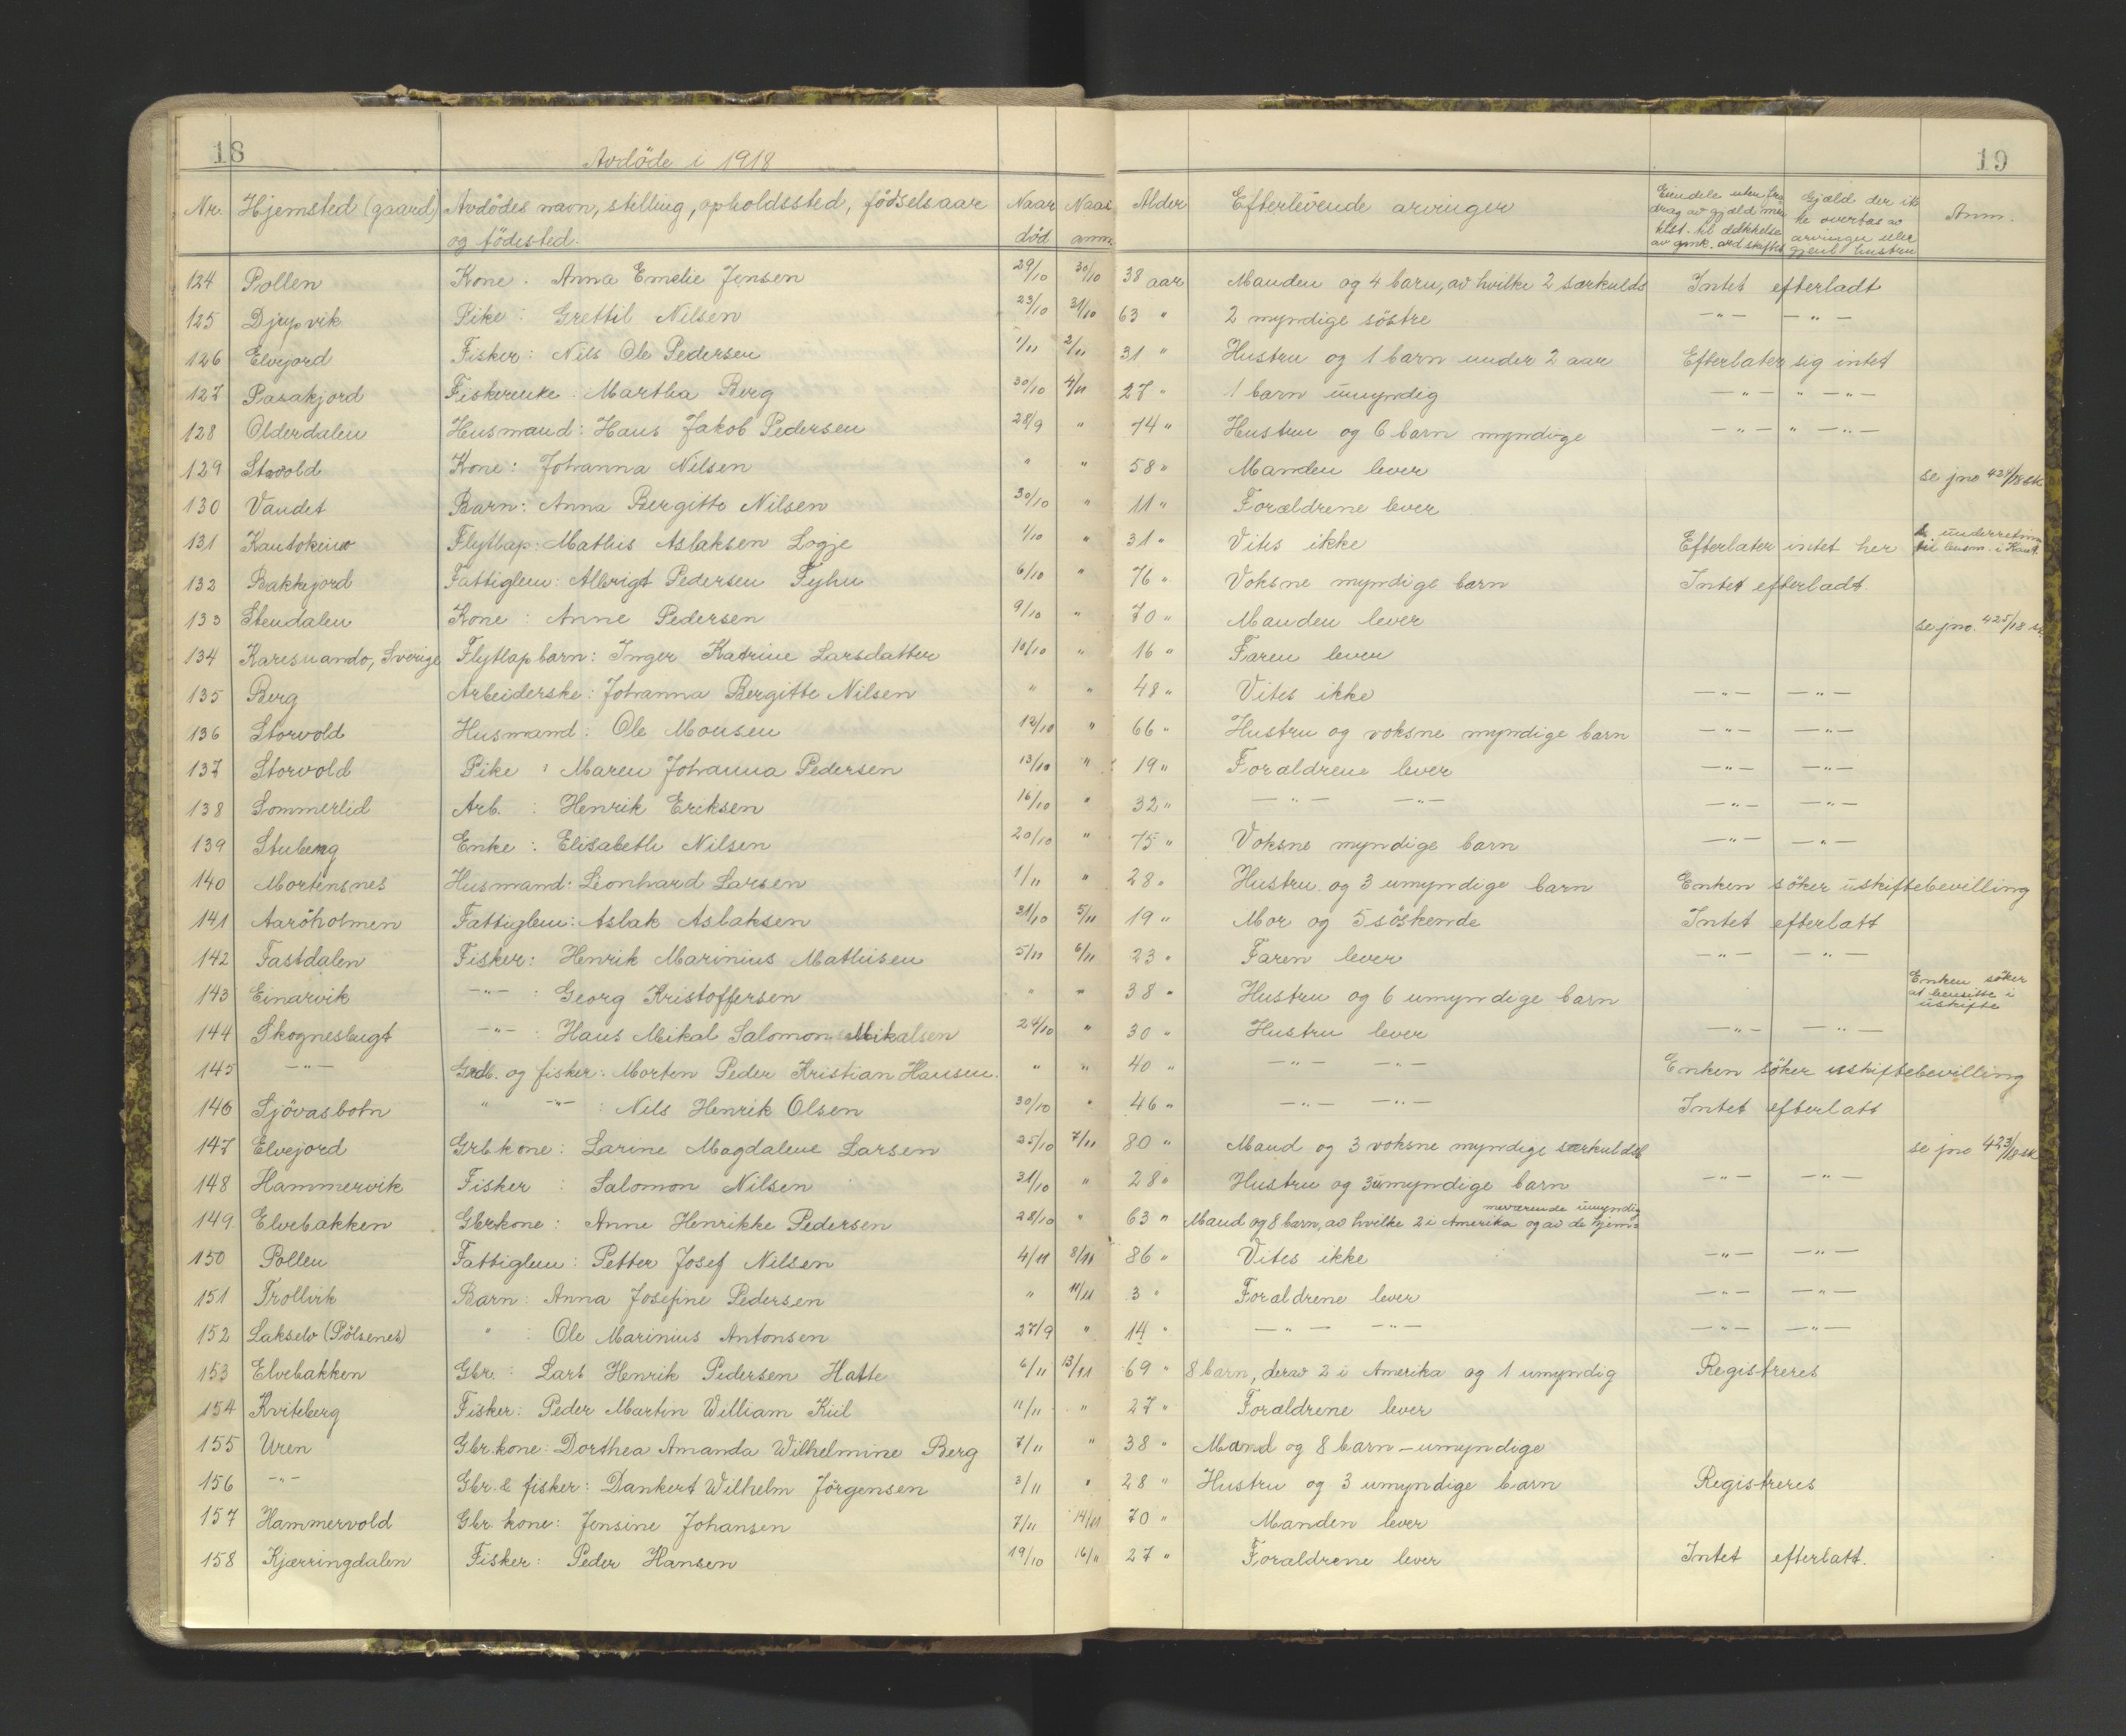 18
Avdöde i 1918
19
Nr. Hjemsted (gaard) Avdödes navn, stilling, opholdssted, födselsaar og födested. Naar död Naar anm. Alder Efterlevende arvinger Eiendele uten fra drag av gjæld av gjenl. Gjæld der ik ke overtas av arvinger eller gjenl. hustru Anm.
124 Pollen Kone: Anna Emelie Jensen 29/10 30/10 38 aar Manden og 4 barn, av hvilke 2 særkulds Intet efterladt
125 Djupvik Pike: Grettil Nilsen 23/10 31/10 63 " 2 myndige söstre —"— —"—
126 Elvejord Fisker: Nils Ole Pedersen 1/11 2/11 31 " Hustru og 1 barn under 2 aar Efterlater sig intet
127 Parakjord Fiskerenke: Martha Berg 30/10 4/11 27 " 1 barn umyndig —"— " —"—
128 Olderdalen Husmand: Hans Jakob Pedersen 28/9 " 74 " Hustru og 6 barn myndige —"— " —"—
129 Stovold Kone: Johanna Nilsen " " 58 " Manden lever se jno 424/18 sk
130 Vandet Barn: Anna Bergitte Nilsen 30/10 " 11 " Forældrene lever
131 Kautokeino Flytlap: Mathis Aslaksen Logje 1/10 " 31 " Vites ikke Efterlater intet her underretning til lensm. i Kaut.
132 Bakkejord Fattiglem: Albrigt Pedersen Fyhn 6/10 " 76 " Voksne myndige barn Intet efterladt.
133 Stendalen Kone: Anne Pedersen 9/10 " 70 " Manden lever se jno. 425/18 sk
134 Karesuando, Sverige Flytlapbarn: Inger Katrine Larsdatter 10/10 " 16 " Faren lever
135 Berg Arbeiderske: Johanna Bergitte Nilsen " " 48 " Vites ikke —"— —"—
136 Storvold Husmand: Ole Monsen 12/10 " 66 " Hustru og voksne myndige barn —"— —"—
137 Storvold Pike: Maren Johanna Pedersen 13/10 " 19 " Forældrene lever —"— —"—
138 Sommerlid Arb.: Henrik Eriksen 16/10 " 32 " —"— —"— —"— —"—
139 Stubeng Enke: Elisabeth Nilsen 20/10 " 75 " Voksne myndige barn —"— —"—
140 Mortensnes Husmand: Leonhard Larsen 1/11 " 28 " Hustru og 3 umyndige barn Enken söker uskiftebevilling
141 Aaröholmen Fattiglem: Aslak Aslaksen 31/10 5/11 19 " Mor og 5 söskende Intet efterlatt
142 Fastdalen Fisker: Henrik Marinius Mathisen 5/11 6/11 23 " Faren lever —"— —"—
143 Einarvik —"—: Georg Kristoffersen " " 38 " Hustru og 6 umyndige barn Enken söker at hensitte i uskifte
144 Skognesbugt —"—: Hans Mikal Salomon Mikalsen 24/10 " 30 " Hustru lever —"— —"—
145 —"— Grdb. og fisker: Morten Peder Kristian Hansen. " " 40 " —"— —"— Enken söker uskiftebevilling
146 Sjövasbotn " —"—: Nils Henrik Olsen 30/10 " 46 " —"— —"— Intet efterlatt
147 Elvejord Grb.kone: Larine Magdalene Larsen 25/10 7/11 80 " Mand og 3 voksne myndige særkuldsb se jno 423/18 sk
148 Hammervik Fisker: Salomon Nilsen 31/10 " 28 " Hustru og 3 umyndige barn —"— —"—
149 Elvebakken Gbrkone: Anne Henrikke Pedersen 28/10 " 63 " Mand og 8 barn, av hvilke 2 i Amerika og av de hjem= meværende umyndig
150 Pollen Fattiglem: Petter Josef Nilsen 4/11 8/11 86 " Vites ikke —"— —"—
151 Trollvik Barn: Anna Josefine Pedersen " 11/11 3 " Forældrene lever —"— —"—
152 Lakselv (Pölsenes) ": Ole Marinius Antonsen 27/9 " 14 " —"— —"— —"— —"—
153 Elvebakken Gbr.: Lars Henrik Pedersen Hatte 6/11 13/11 69 " 8 barn, derav 2 i Amerika og 1 umyndig Registreres
154 Kviteberg Fisker: Peder Martin William Kiil 11/11 " 27 " Forældrene lever
155 Uren Gbr.kone: Dorthea Amanda Wilhelmine Berg 7/11 " 38 " Mand og 8 barn - umyndige
156 —"— Gbr. & fisker: Dankert Wilhelm Jörgensen 3/11 " 28 " Hustru og 3 umyndige barn Registreres
157 Hammervold Gbr. kone: Jensine Johansen 7/11 14/11 70 " Manden lever
158 Kjærringdalen Fisker: Peder Hansen 19/10 16/11 27 " Forældrene lever Intet efterlatt.